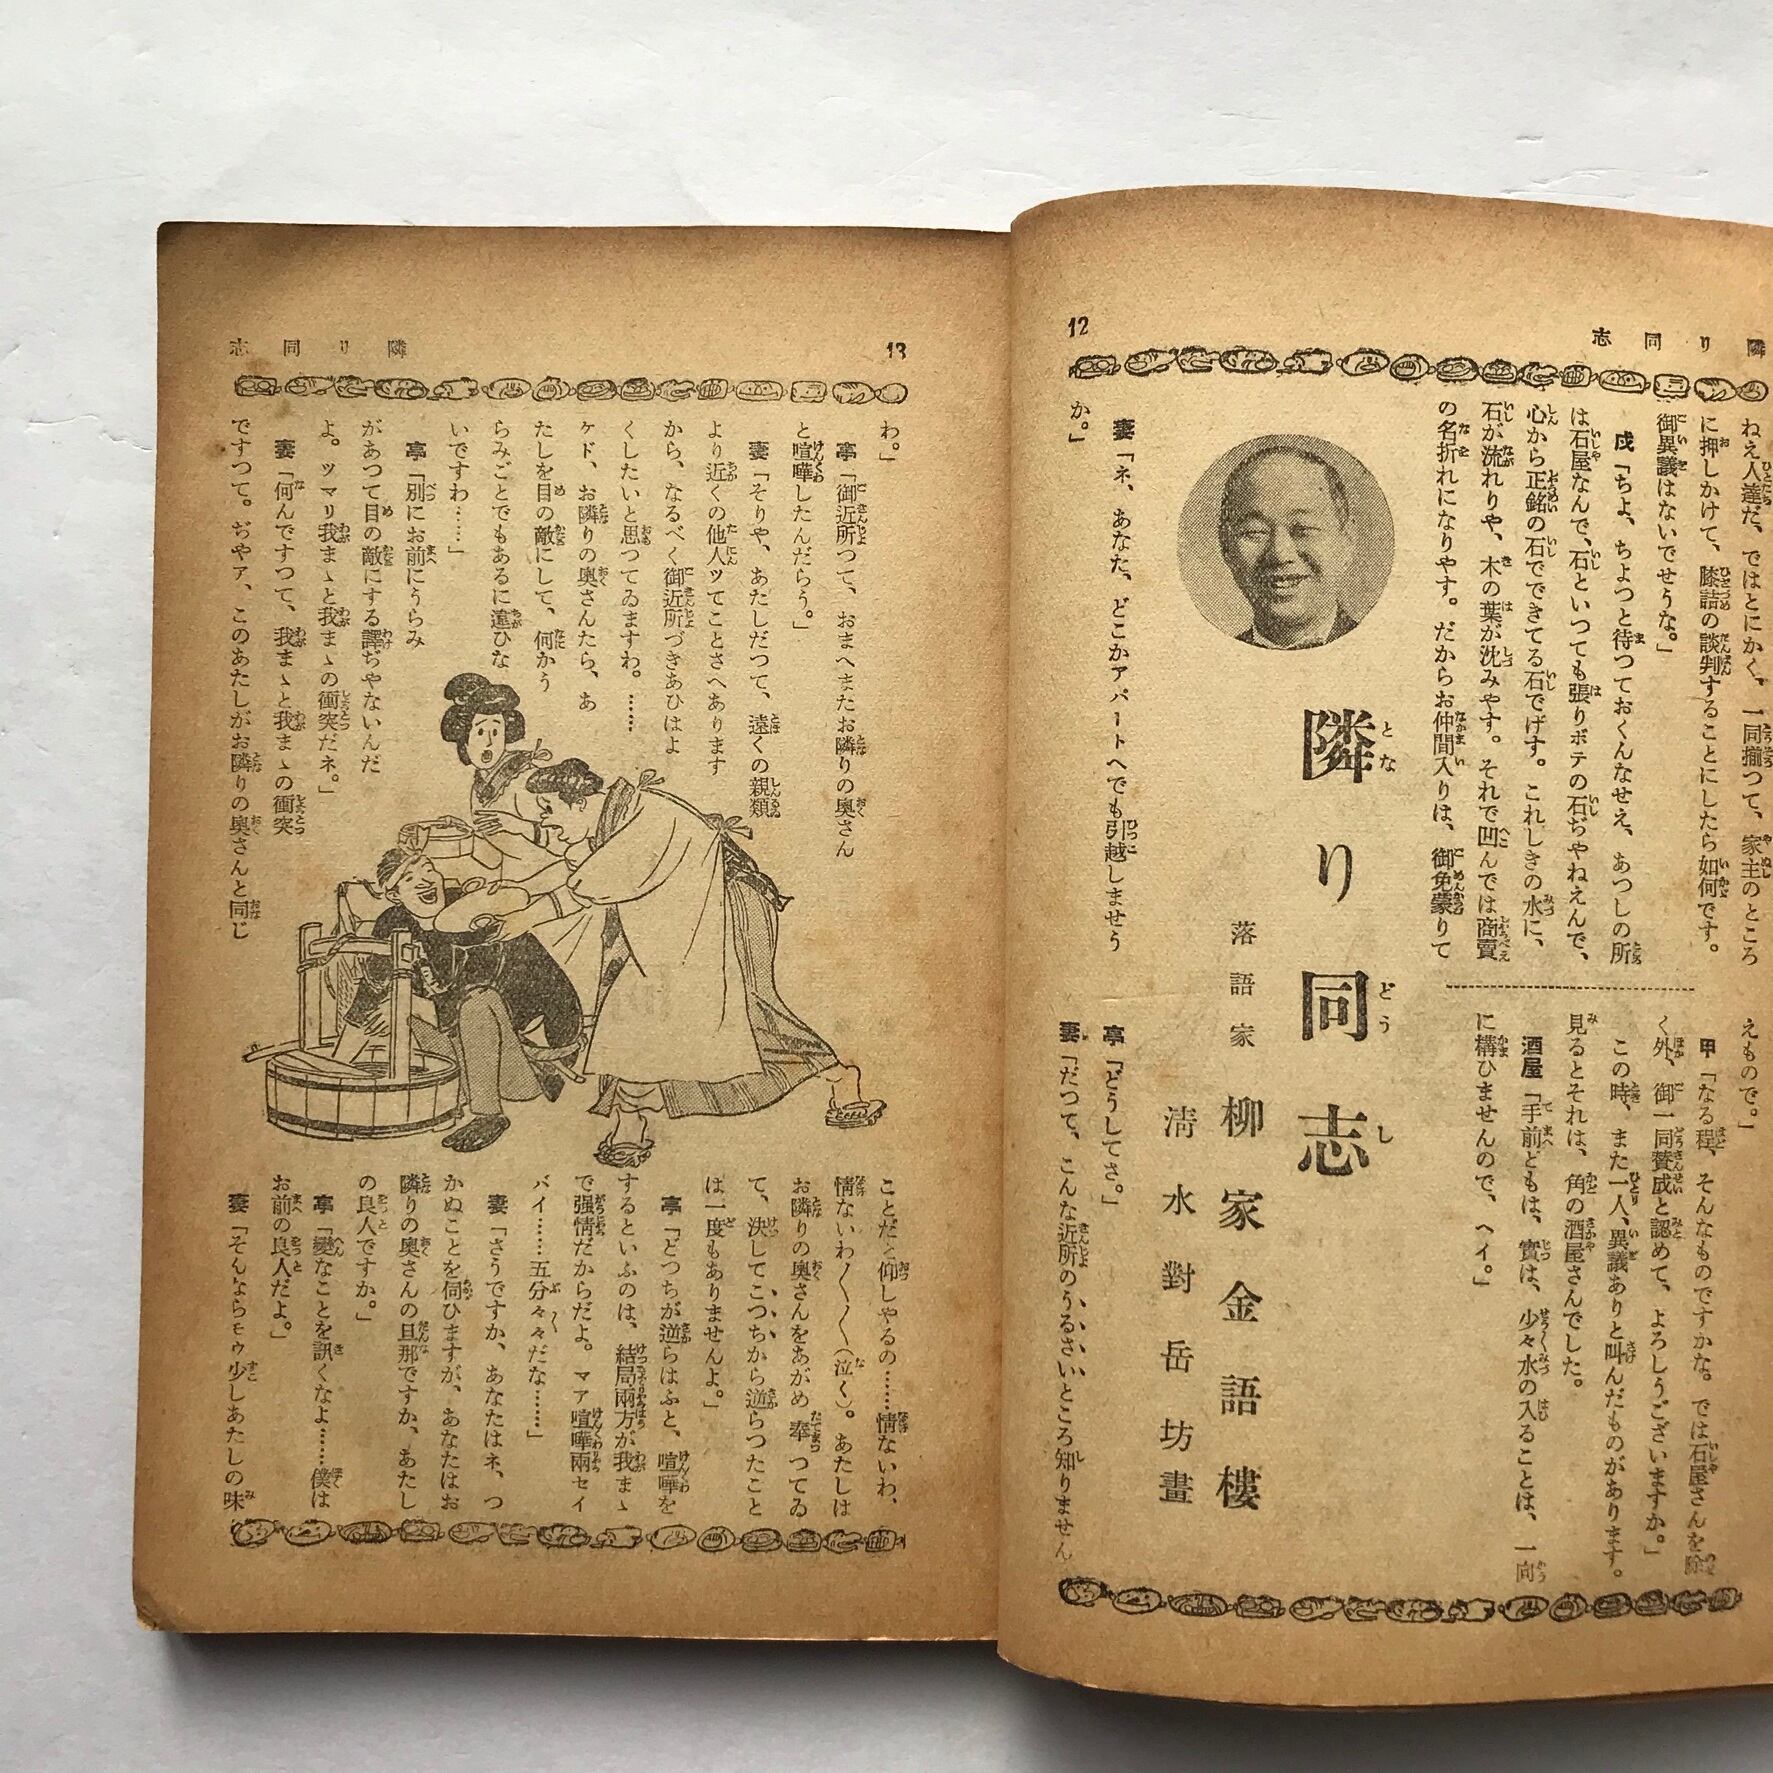 12
隣り同志
ねえ人達だ、ではとにかく、一同揃つて、家主のところ
に押しかけて、膝詰の談判することにしたら如何です。
御異議はないでせうな。」
戌「ちよ、ちよつと待つておくんなせえ、あつしの所
は石屋なんで、石といつても張りボテの石ぢやねえんで、
心から正銘の石でできてる石でげす。これしきの水に、
石が流れりや、木の葉が沈みやす。それで凹んでは商賣
の名折れになりやす。だからお仲間入りは、御免蒙りて
えもので。」
甲「なる程、そんなものですかな。では石屋さんを除
く外、御一同賛成と認めて、よろしうございますか。」
この時、また一人、異議ありと叫んだものがあります。
見るとそれは、角の酒屋さんでした。
酒屋「手前どもは、實は、少々水の入ることは、一向
に構ひませんので、ヘイ。」
隣り同志
落語家 柳家金語樓
淸水對岳坊畫
妻「ネ、あなた、どこかアパートへでも引越しませう
か。」
亭「どうしてさ。」
妻「だつて、こんな近所のうるさいところ知りません
13
隣り同志
わ。」
亭「御近所つて、おまへまたお隣りの奥さん
と喧嘩したんだらう。」
妻「そりや、あたしだつて、遠くの親類
より近くの他人ッてことさへあります
から、なるべく御近所づきあひはよ
くしたいと思つてゐますわ。……
ケド、お隣りの奥さんたら、あ
たしを目の敵にして、何かう
らみごとでもあるに違ひな
いですわ……」
亭「別にお前にうらみ
があつて目の敵にする譯ぢやないんだ
よ。ツマリ我まゝと我まゝの衝突だネ。」
妻「何んですつて、我まゝと我まゝの衝突
ですつて。ぢやア、このあたしがお隣りの奥さんと同じ
ことだと仰しやるの……情ないわ、
情ないわ〱〱（泣く）。あたしは
お隣りの奥さんをあがめ奉つてゐ
て、決してこつちから逆らつたこと
は一度もありませんよ。」
亭「どつちが逆らはふと、喧嘩を
するといふのは、結局兩方が我まゝ
で强情だからだよ。マア喧嘩兩セイ
バイ……五分々々だな……」
妻「さうですか、あなたはネ、つ
かぬことを伺ひますが、あなたはお
隣りの奥さんの旦那ですか、あたし
の良人ですか。」
亭「變なことを訊くなよ……僕は
お前の良人だよ。」
妻「そんならモウ少しあたしの味